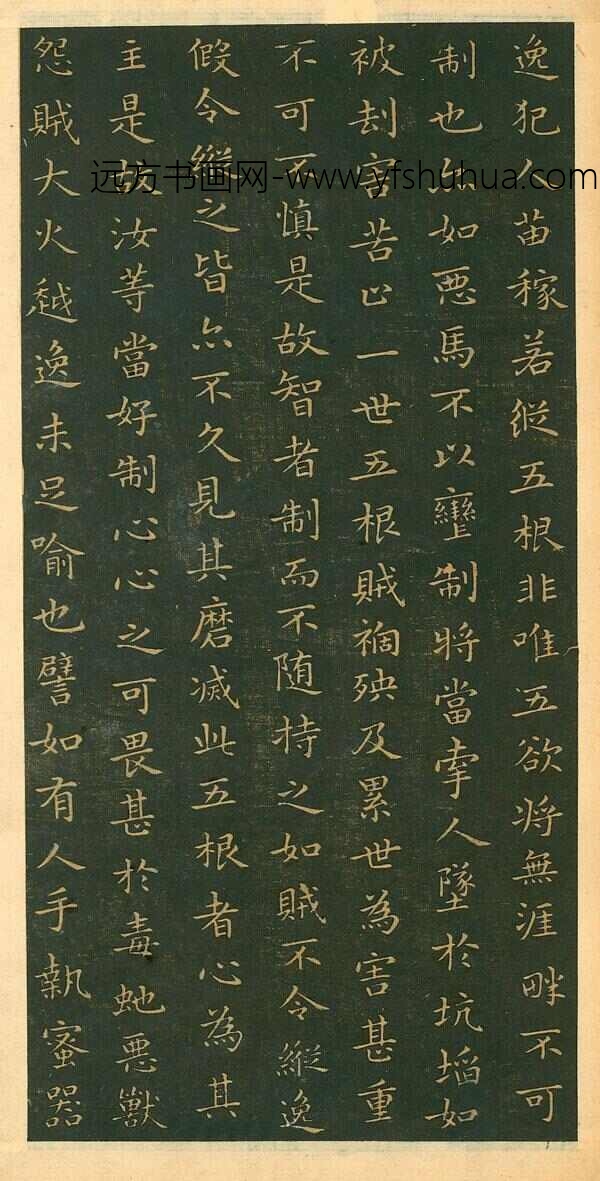 逸犯人苗稼若縱五根非唯五欲將無涯畔不可
制也亦如悪馬不以轡制將當牽人墜於坑埳如
被刦害苦止一世五根賊禍殃及累世為害甚重
不可不慎是故智者制而不随持之如賊不令縱逸
假令縱之皆亦不久見其磨滅此五根者心為其
主是故汝等當好制心心之可畏甚於毒虵悪獸
怨賊大火越逸未足喻也譬如有人手執蜜器
远方书画网-www.yfshuhua.com